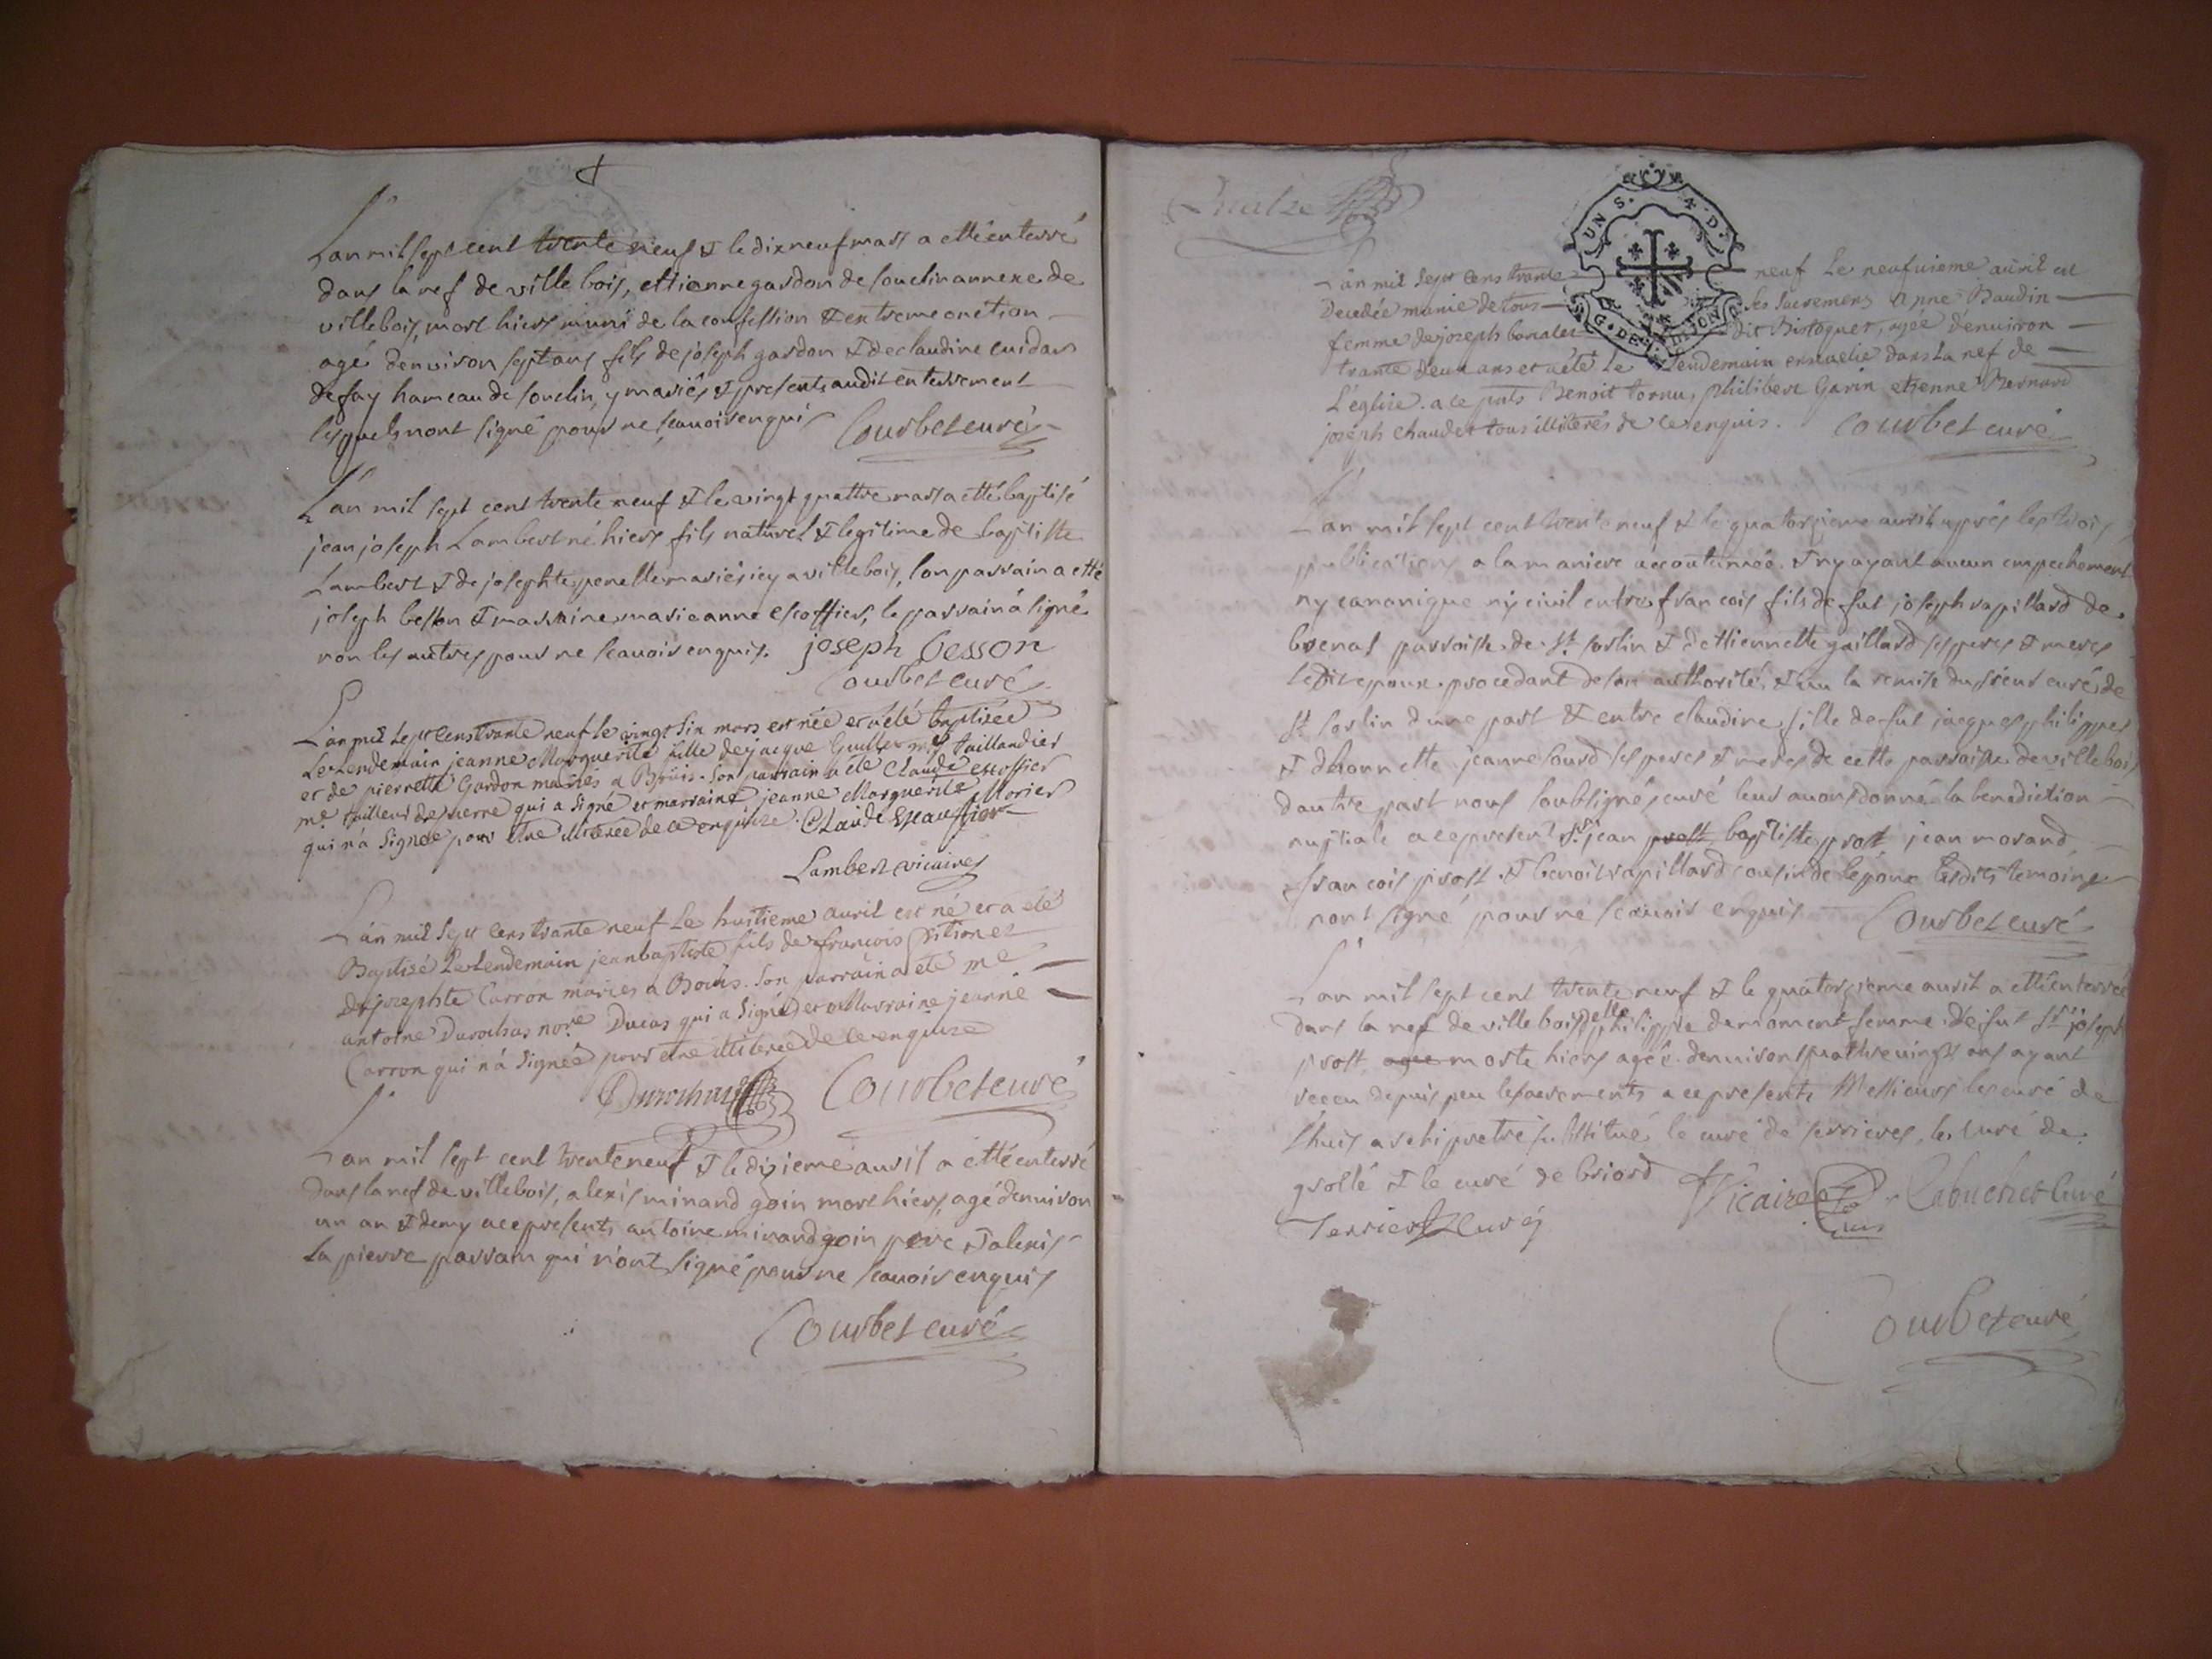 L'an mil sept cent trente neuf & le dix neuf mars a etté enterré
dans la nef de ville bois, ettienne gardon de souclin annexe de
villebois, mort hiers muni de la confession & extreme onction
agé denviron sept ans fils de joseph gardon & de claudine
de fay hameau de souclin, y mariés & presents audit enterrement
lesquels nont signé pour ne scauoir enquis Courbet curé
L'an mil sept cent trente neuf & le vingt quattre mars a etté baptisé
jean joseph Lambert né hiers fils naturel & legitime de baptiste
Lambert & de josephte penelle mariés icy a villebois, son parrain a etté
joseph besson & marraine marieanne escoffier, le parrain a signé
non les autres pour ne scauoir enquis. joseph besson
Courbet curé
L'an mil sept cens trante neuf le vingt six mars est née et a été baptisée
Le Lendemain jeanne Marguerite fille de jacque taillandier
et de pierrette Gardon mariés a Bouis. Son parrain a été Claude escoffier
me tailleur de pierre qui a signé et marraine jeanne Marguerite Morier
qui n'a signée pour etre illiterée de ce enquise. Claude
Lambert vicaire
L'an mil sept cens trante neuf Le huitieme auril est né et a été
Baptisé Le Lendemain jean baptiste fils de francois
de josephte Carron mariés a Bouis. Son parrain a été me
antoine Durochat nore Ducas qui a signé et Marraine jeanne
Carron qui n'a signée pour etre illiterée de ce enquise
Durochat Courbet curé
L'an mil sept cent trente neuf & le dixieme auril a etté enterré
dans la nef de villebois, alexis minand goin mort hiers, agé denuiron
un an & demy a ce presents antoine minand goin pere & alexis
la pierre parrain qui n'ont signé pour ne scauoir enquis
Courbet curé
L'an mil sept cens trante neuf Le neufuieme auril est
Decedée munie de tous les sacremens Anne Baudin
femme de joseph dit Bistoquet, agée d'enuiron
trante deux ans et a été Le Lendemain enseuelie dans La nef de
L'église. a ce pnts Benoit tornu, philibert Garin etienne Bernard
joseph Chaudet tous illiterés de ce enquis. Courbet curé
L'an mil sept cent trente neuf & le quatorzieme auril apprés les trois
publications a la maniere accoutumée, & ny ayant aucun empechement
ny canonique ny ciuil entre francois fils de fut joseph rapillard de
brenas parroisse de St sorlin & dettiennette gaillard ses peres & meres
ledit epoux procedant de son authorité, & uu la remise du sieur curé de
St sorlin dune part & entre claudine fille de fut jacques philippes
& dhonnette jeanne sourd ses peres & meres de cette parroisse de villebois
dautre part nous soubsigné curé leur auons donné la benediction
nuptiale a ce present sr jean prost baptiste prost jean morand,
francois prost & benoit rapillard cousin de lepoux lesdits temoins
nont signé pour ne scauoir enquis Courbet curé
L'an mil sept cent trente neuf & le quatorzieme auril a etté enterrée
dans la nef de villebois delle philippe de moment femme de fut Sr joseph
prost agée morte hiers agée denuiron quattreuingts ans ayant
receu depuis peu les sacrements a ce presents Messieurs les curé de
lhuis archipretre substitué le curé de serrieres, le curé de
groslé & le curé de briord Vicaire Labouchet Curé
Terrier curé
Courbet curé